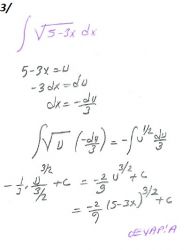 3/
∫ √5-3x dx
5-3x = u
-3dx = du
dx = -du/3
∫ √u (-du/3) = -∫ u^1/2 du/3
-1/3 . u^3/2 / 3/2 + c = -2/9 u^3/2 + c
= -2/9 (5-3x)^3/2 + c